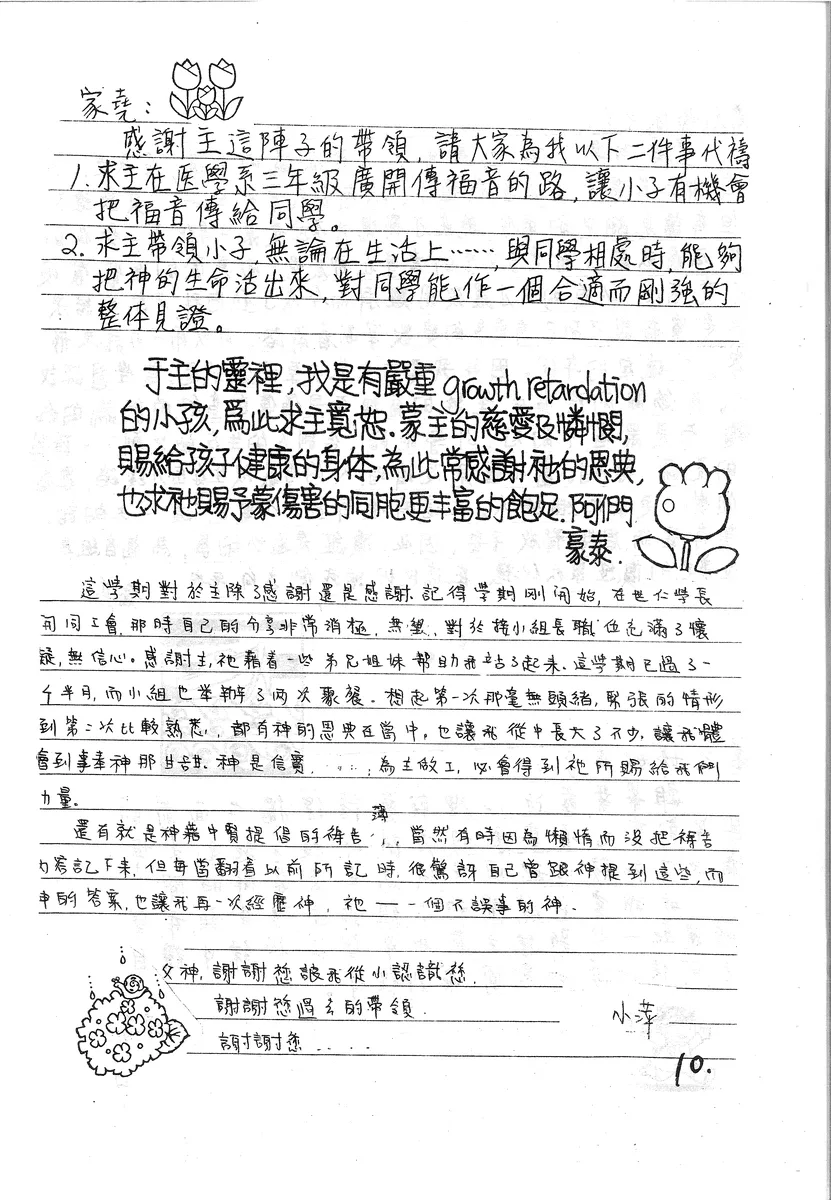 家堯：
感謝主這陣子的帶領，請大家為我以下二件事代禱
1. 求主在医學系三年級廣開傳福音的路，讓小子有機會
把福音傳給同學。
2. 求主帶領小子，無論在生活上……，與同學相處時，能夠
把神的生命活出來，對同學能作一個合適而剛強的
整体見證。
于主的靈裡，我是有嚴重 growth retardation
的小孩，為此求主寬恕．蒙主的慈愛及憐憫，
賜給孩子健康的身体，為此常感謝祂的恩典，
也求祂賜予蒙傷害的同胞更丰富的飽足．阿們
豪泰．
這學期對於主除了感謝還是感謝．記得學期剛開始，在世仁學長
開同工會，那時自己的分享非常消極，無望，對於接小組長職位充滿了懷
疑，無信心。感謝主，祂藉着一些弟兄姐妹幫助我站了起來．這學期已過了一
個半月，而小組也举辦了兩次聚餐．想起第一次那毫無頭緒，緊張的情形
到第二次比較熟悉，都有神的恩典在當中，也讓我從中長大了不少，讓我體
會到事奉神那甘甜．神是信實．．．．．，為主做工，必會得到祂所賜給我們
力量。
還有就是神藉中賢提倡的禱告簿，，當然有時因為懶惰而沒把禱告
內容記下來，但每當翻看以前所記時，很驚訝自己曾跟神提到這些，而
中的答案，也讓我再一次經歷神，祂——一個不誤事的神．
父神，謝謝您讓我從小認識您．
謝謝您過去的帶領．
謝謝您．．．．
小萍
10.